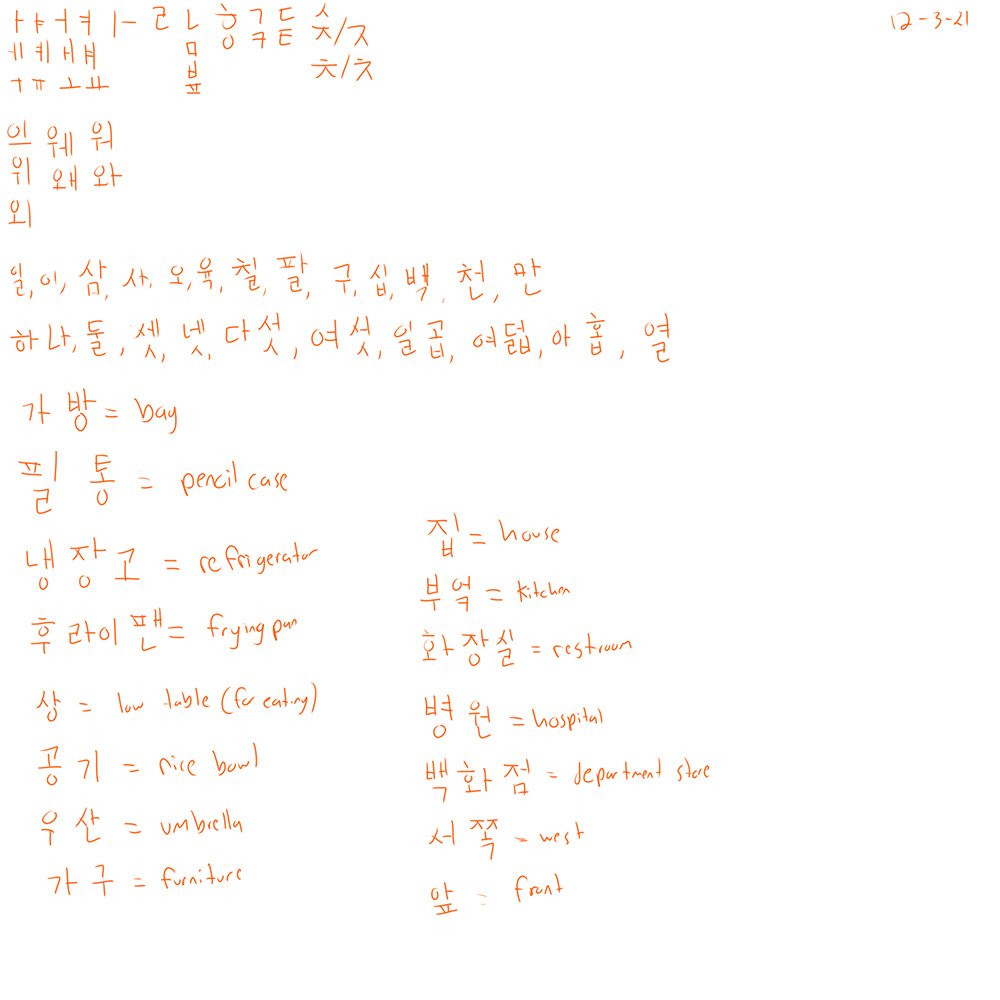 ㅏㅑㅓㅕㅣㅡ ㄹ ㄴ ㅎ ㄱ ㄷ ㅅ 12-3-21
ㅔㅖㅐㅒ ㅁ ㅇ ㅋ ㅌ ㅅ/ㅈ
ㅜㅠㅗㅛ ㅂ ㅊ/ㅊ
ㅍ
의 웨 워
위 왜 와
외
일, 이, 삼, 사, 오, 육, 칠, 팔, 구, 십, 백, 천, 만
하나, 둘, 셋, 넷, 다섯, 여섯, 일곱, 여덟, 아홉, 열
가방 = bag
필통 = pencil case
냉장고 = refrigerator
후라이팬 = frying pan
상 = low table (for eating)
공기 = rice bowl
우산 = umbrella
가구 = furniture
집 = house
부엌 = kitchen
화장실 = restroom
병원 = hospital
백화점 = department store
서쪽 = west
앞 = front